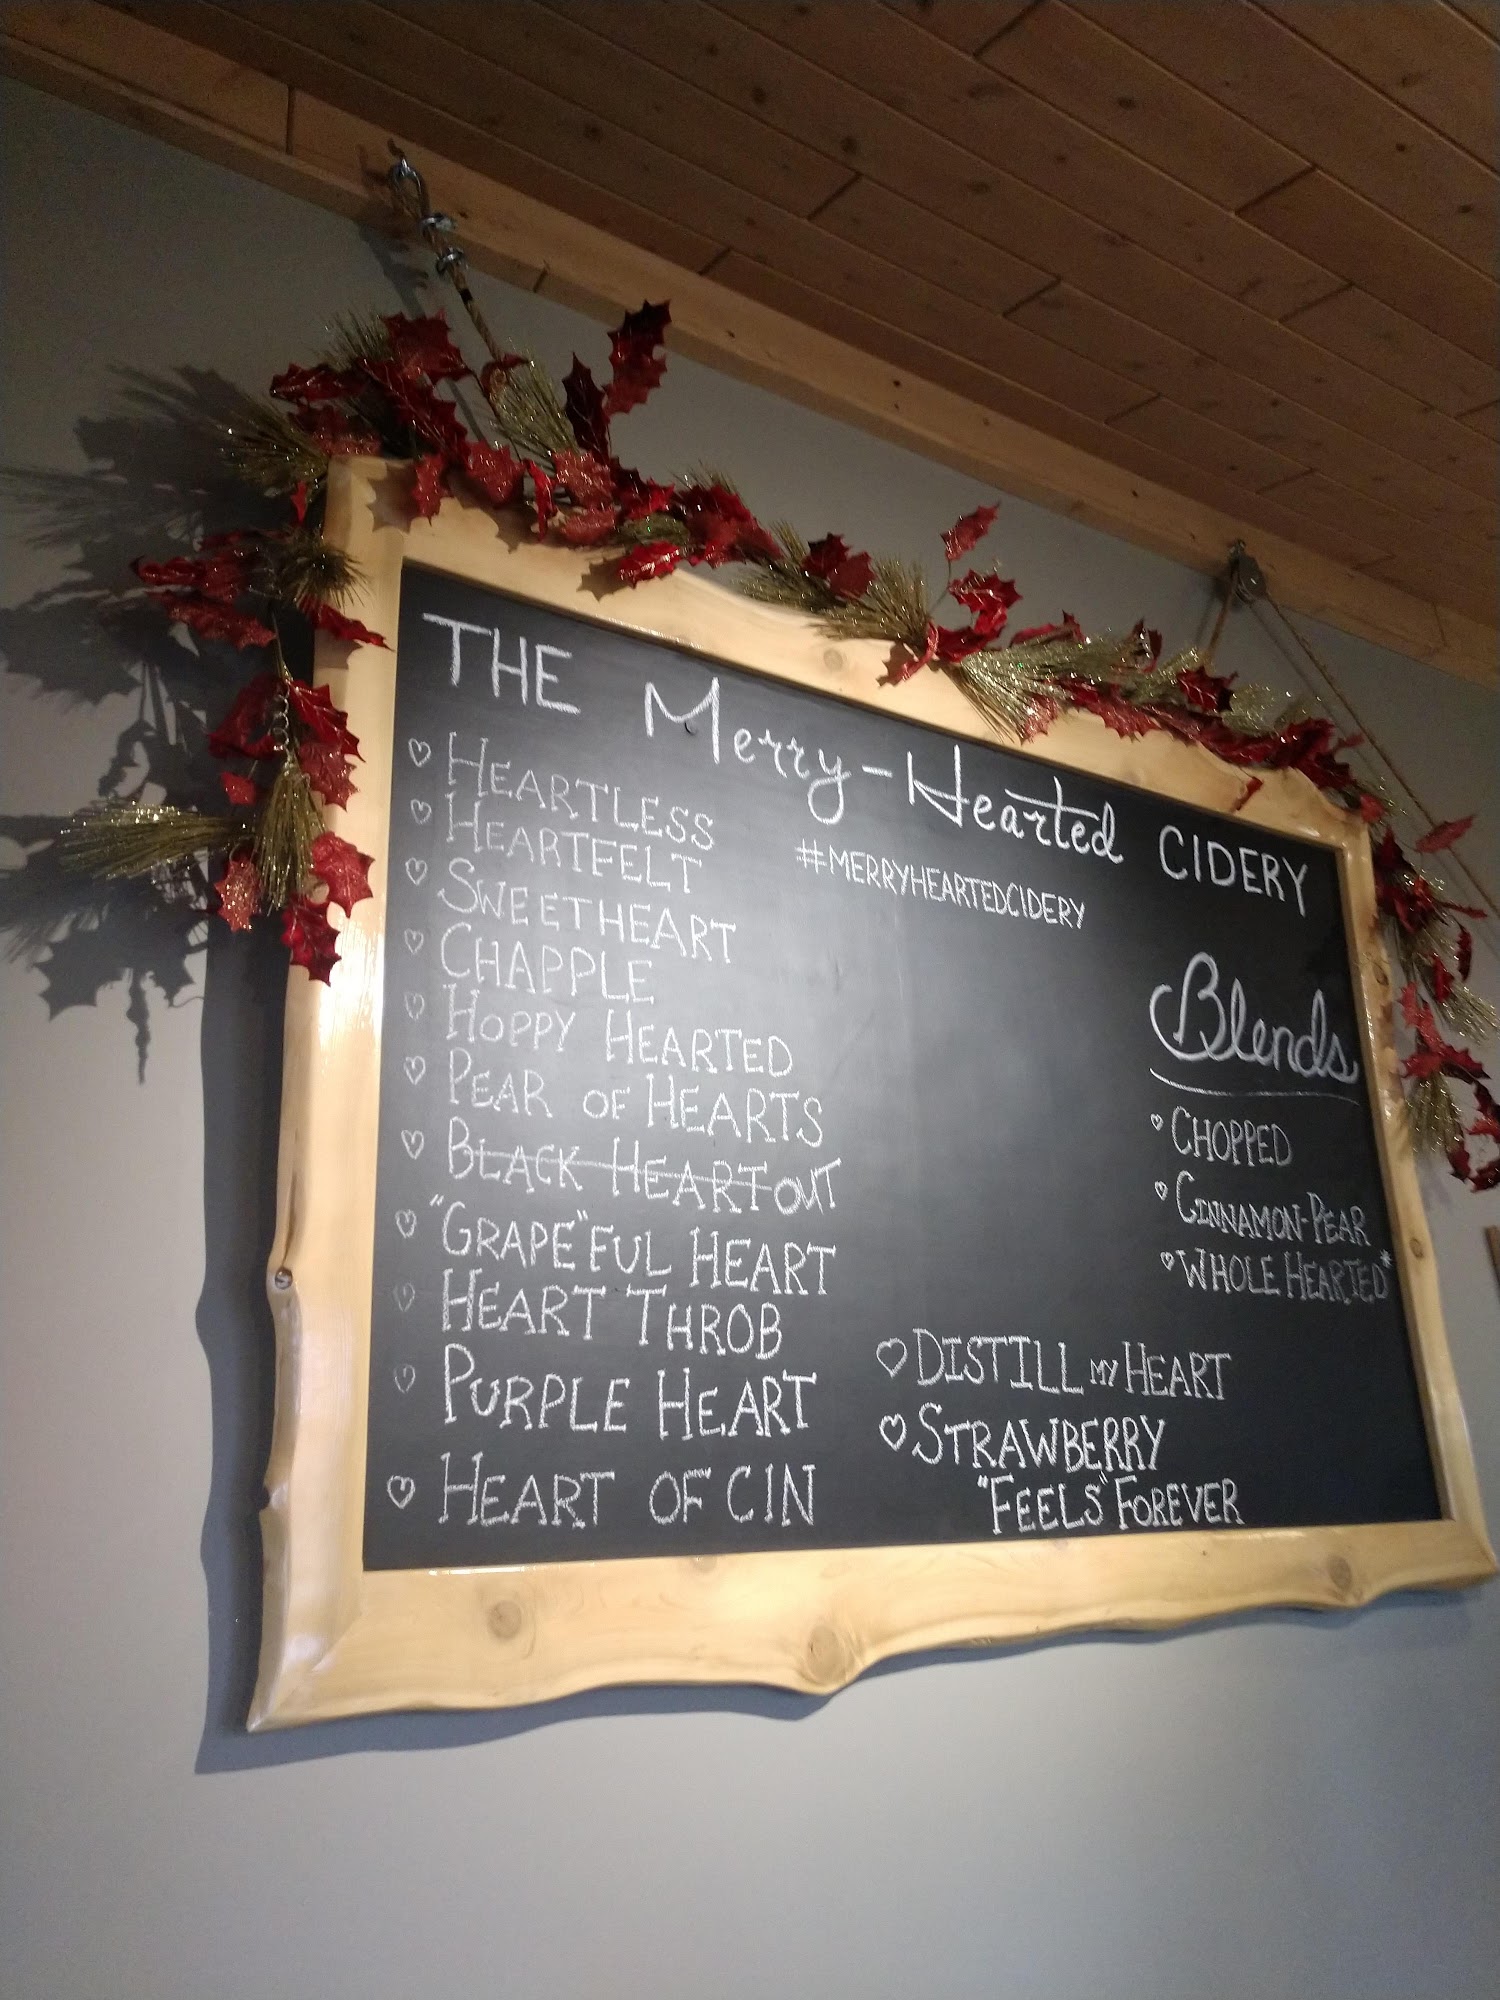 THE Merry-Hearted CIDERY
#MERRYHEARTEDCIDERY
♡ HEARTLESS
♡ HEARTFELT
♡ SWEETHEART
♡ CHAPPLE
♡ HOPPY HEARTED
♡ PEAR OF HEARTS
♡ BLACK HEART OUT
♡ "GRAPE"FUL HEART
♡ HEART THROB
♡ PURPLE HEART
♡ HEART OF CIN
Blends
♡ CHOPPED
♡ CINNAMON-PEAR
♡ WHOLE HEARTED*
♡ DISTILL MY HEART
♡ STRAWBERRY
"FEELS" FOREVER